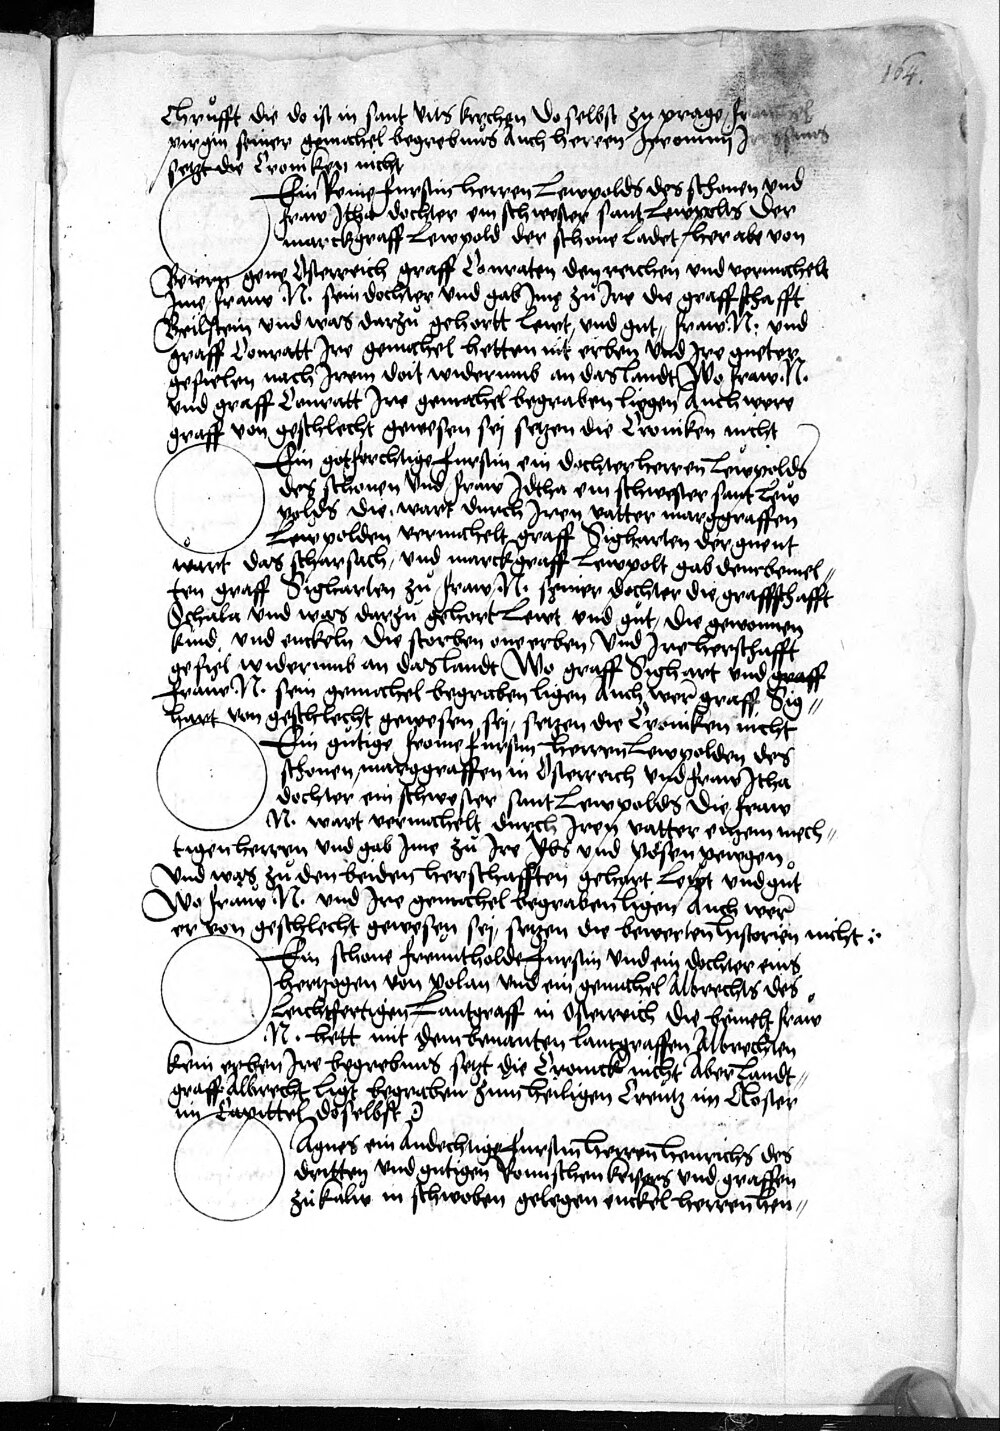 164.
Chrufft die do ist in sant Vits kirchen Do selbst zu prage
virgin seiner gemachel begrebnus Auch herren Jeronimy
setzt die Croniken nicht
Ein Reine furstin herren Lewpolds des schonen und
fraw Jtha dochter ein schwester sant Lewpolts Der
marckgraff Lewpold der schone Ladet her abe von
Beiern gene Osterreich graff Conraten den reichen und vermachelt
Jme fraw .N. sein dochter und gab Jme zů Jre die graffschafft
Beilstein und was darzů gehortt Lewt und gut, fraw .N. und
graff Conratt Jre gemachel hetten nit erben Und Jre gueter
gefielen nach Jrem doit widerumb an das landt Wo fraw .N.
und graff Conratt Jre gemachel begraben liegen Auch were
graff von geschlecht gewesen sej setzen die Croniken nicht
Ein gotforchtige furstin ein dochter herren Lewpolds
des schonen Und fraw Jdtha ein schwester sant Lew
polds die wart durch Jren vatter marggraffen
Lewpolden vermachelt graff Sigharten der guent
wart das scharsach, und marckgraff Lewpolt gab dem bemel//
ten graff Sigharten zů fraw .N. seiner dochter die graffschafft
Schala und was darzů gehort Lewt und gut, die gewonnen
kind und enckeln die storben one erben, Und Jre herschafft
gefiel widerumb an das landt Wo graff Sighart und graff
fraw .N. sein gemachel begraben ligen Auch wer graff Sig//
hart von geschlecht gewesen sej, setzen die Croniken nicht
Ein gutige frome furstin herren Lewpolden des
schonen marggraffen in Osterreich und fraw Jtha
dochter ein schwester sant Lewpolds Die fraw
.N. wart vermachelt durch Jren vatter einem mech//
tigen herren und gab Jme zů Jre Ybs und posenpewgen
Und was zů den beiden herschafften gehort Lewt und gut
Wo fraw .N. und Jre gemachel begraben ligen Auch wer
er von geschlecht gewesen sej, setzen die bewerten historien nicht
Ein schone freuntholde furstin und ein dochter eins
hertzogen von polan und ein gemachel Albrechts des
Leichtfertigen Lantgraff in Osterreich die bemelt fraw
.N. hett mit dem benanten lantgraffen Albrechten
kein erben Jre begrebnus setzt die Cronick nicht Aber Landt//
graff Albrecht ligt begraben zum heiligen Creutz im Closter
im Capittel doselbst
Agnes ein Andechtige furstin herren henrichs des
dritten und gutigen Romischen keisers und graffen
zu kalw in schwoben gelegen enckel herren hen//